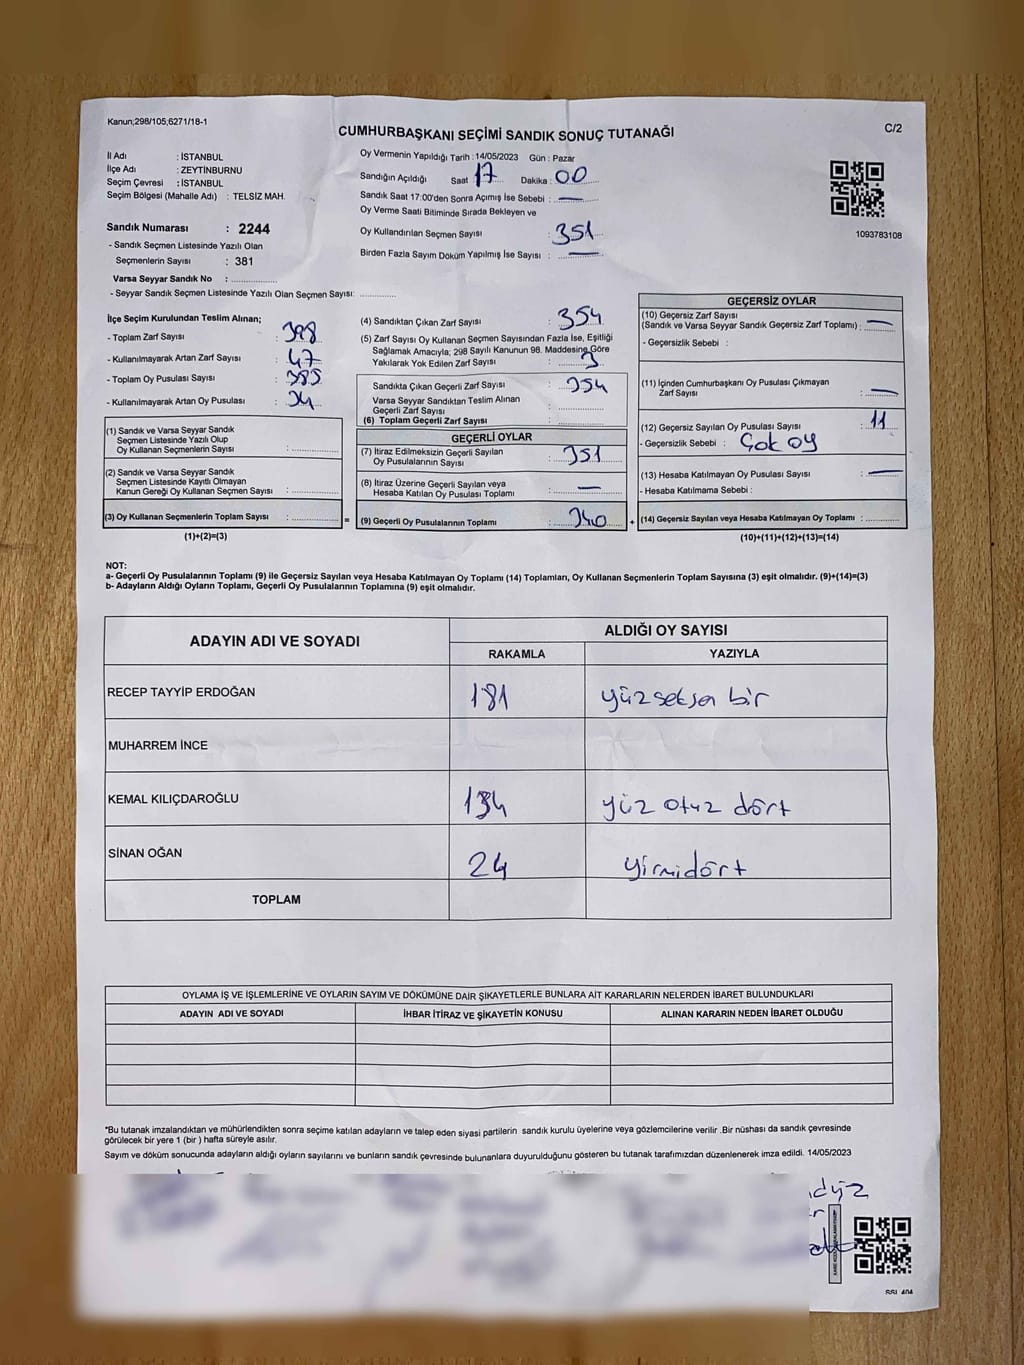 Kanun;298/105,6271/18-1
CUMHURBAŞKANI SEÇİMİ SANDIK SONUÇ TUTANAĞI
C/2
İl Adı : İSTANBUL
İlçe Adı : ZEYTİNBURNU
Seçim Çevresi : İSTANBUL
Seçim Bölgesi (Mahalle Adı) : TELSİZ MAH.
Sandık Numarası : 2244
- Sandık Seçmen Listesinde Yazılı Olan
Seçmenlerin Sayısı : 381
Varsa Seyyar Sandık No :
- Seyyar Sandık Seçmen Listesinde Yazılı Olan Seçmen Sayısı:
Oy Vermenin Yapıldığı Tarih : 14/05/2023 Gün : Pazar
Sandığın Açıldığı Saat 17 Dakika : 00
Sandık Saat 17:00'den Sonra Açımış İse Sebebi : —
Oy Verme Saati Bitiminde Sırada Bekleyen ve
Oy Kullandırılan Seçmen Sayısı : 351
Birden Fazla Sayım Döküm Yapılmış İse Sayısı : —
1093783108
İlçe Seçim Kurulundan Teslim Alınan;
- Toplam Zarf Sayısı : 398
- Kullanılmayarak Artan Zarf Sayısı : 47
- Toplam Oy Pusulası Sayısı : 385
- Kullanılmayarak Artan Oy Pusulası : 34
(1) Sandık ve Varsa Seyyar Sandık
Seçmen Listesinde Yazılı Olup
Oy Kullanan Seçmenlerin Sayısı :
(2) Sandık ve Varsa Seyyar Sandık
Seçmen Listesinde Kayıtlı Olmayan
Kanun Gereği Oy Kullanan Seçmen Sayısı :
(3) Oy Kullanan Seçmenlerin Toplam Sayısı : =
(1)+(2)=(3)
(4) Sandıktan Çıkan Zarf Sayısı : 354
(5) Zarf Sayısı Oy Kullanan Seçmen Sayısından Fazla İse, Eşitliği
Sağlamak Amacıyla; 298 Sayılı Kanunun 98. Maddesine Göre
Yakılarak Yok Edilen Zarf Sayısı : 3
Sandıkta Çıkan Geçerli Zarf Sayısı : 354
Varsa Seyyar Sandıktan Teslim Alınan
Geçerli Zarf Sayısı :
(6) Toplam Geçerli Zarf Sayısı :
GEÇERLİ OYLAR
(7) İtiraz Edilmeksizin Geçerli Sayılan
Oy Pusulalarının Sayısı : 351
(8) İtiraz Üzerine Geçerli Sayılan veya
Hesaba Katılan Oy Pusulası Toplamı : —
(9) Geçerli Oy Pusulalarının Toplamı : 340 +
GEÇERSİZ OYLAR
(10) Geçersiz Zarf Sayısı
(Sandık ve Varsa Seyyar Sandık Geçersiz Zarf Toplamı) : —
- Geçersizlik Sebebi :
(11) İçinden Cumhurbaşkanı Oy Pusulası Çıkmayan
Zarf Sayısı : —
(12) Geçersiz Sayılan Oy Pusulası Sayısı : 11
- Geçersizlik Sebebi : Çok oy
(13) Hesaba Katılmayan Oy Pusulası Sayısı : —
- Hesaba Katılmama Sebebi :
(14) Geçersiz Sayılan veya Hesaba Katılmayan Oy Toplamı :
(10)+(11)+(12)+(13)=(14)
NOT:
a- Geçerli Oy Pusulalarının Toplamı (9) ile Geçersiz Sayılan veya Hesaba Katılmayan Oy Toplamı (14) Toplamları, Oy Kullanan Seçmenlerin Toplam Sayısına (3) eşit olmalıdır. (9)+(14)=(3)
b- Adayların Aldığı Oyların Toplamı, Geçerli Oy Pusulalarının Toplamına (9) eşit olmalıdır.
ADAYIN ADI VE SOYADI
ALDIĞI OY SAYISI
RAKAMLA YAZIYLA
RECEP TAYYİP ERDOĞAN 181 yüzseksen bir
MUHARREM İNCE
KEMAL KILIÇDAROĞLU 134 yüz otuz dört
SİNAN OĞAN 24 yirmidört
TOPLAM
OYLAMA İŞ VE İŞLEMLERİNE VE OYLARIN SAYIM VE DÖKÜMÜNE DAİR ŞİKAYETLERLE BUNLARA AİT KARARLARIN NELERDEN İBARET BULUNDUKLARI
ADAYIN ADI VE SOYADI İHBAR İTİRAZ VE ŞİKAYETİN KONUSU ALINAN KARARIN NEDEN İBARET OLDUĞU
*Bu tutanak imzalandıktan ve mühürlendikten sonra seçime katılan adayların ve talep eden siyasi partilerin sandık kurulu üyelerine veya gözlemcilerine verilir .Bir nüshası da sandık çevresinde
görülecek bir yere 1 (bir ) hafta süreyle asılır.
Sayım ve döküm sonucunda adayların aldığı oyların sayılarını ve bunların sandık çevresinde bulunanlara duyurulduğunu gösteren bu tutanak tarafımızdan düzenlenerek imza edildi. 14/05/2023